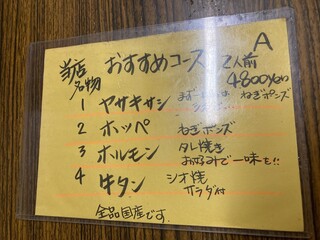 当店名物 おすすめコース 2人前 A
4800yen
1 ヤサキサシ ねぎポンズ
2 ホッペ ねぎポンズ
3 ホルモン タレ焼き
お好みで一味も!!
4 牛タン シオ焼
サラダ付
全品国産です.